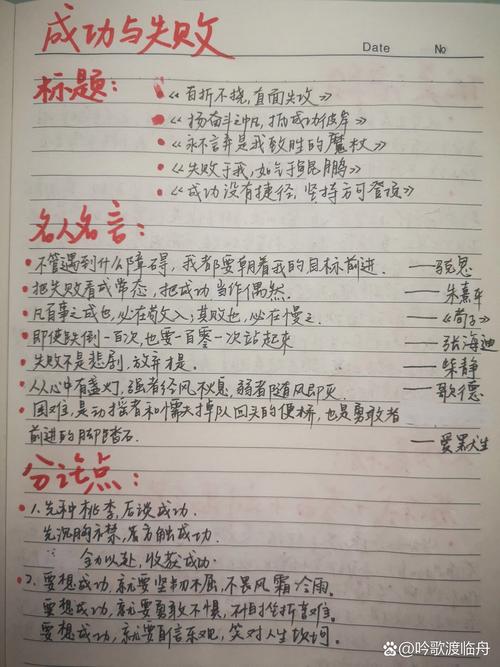 成功与失败
Date No
标题：
《百折不挠，直面失败》
《扬奋斗之帆，抵成功彼岸》
《永不言弃是我致胜的魔杖》
《失败于我，如气于鲲鹏》
《成功没有捷径，坚持方可登顶》
名人名言：
不管遇到什么障碍，我都要朝着我的目标前进. ——马克思
把失败看成常态，把成功当作偶然. ——朱熹平
凡百事之成也，必在敬之；其败也，必在慢之. ——《荀子》
即使跌倒一百次，也要一百零一次站起来 ——张海迪
失败不是悲剧，放弃才是. ——柴静
人心中有盏灯，强者经风不息，弱者随风即灭. ——歌德
困难，是动摇者和懦夫掉队回头的便桥，也是勇敢者
前进的脚踏石. ——爱默生
分论点：
1. 先种桃李，后谈成功.
先沉胸襟，后方触成功.
全力以赴，收获成功.
2. 要想成功，就要坚韧不屈，不畏风霜冷雨.
要想成功，就要勇敢不惧，不怕挫折艰难.
要想成功，就要自信乐观，笑对人生坎坷.
@吟歌渡临舟